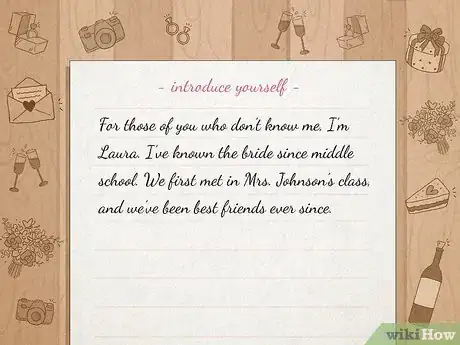 - introduce yourself -
For those of you who don't know me, I'm
Laura. I've known the bride since middle
school. We first met in Mrs. Johnson's class,
and we've been best friends ever since.
wikiHow